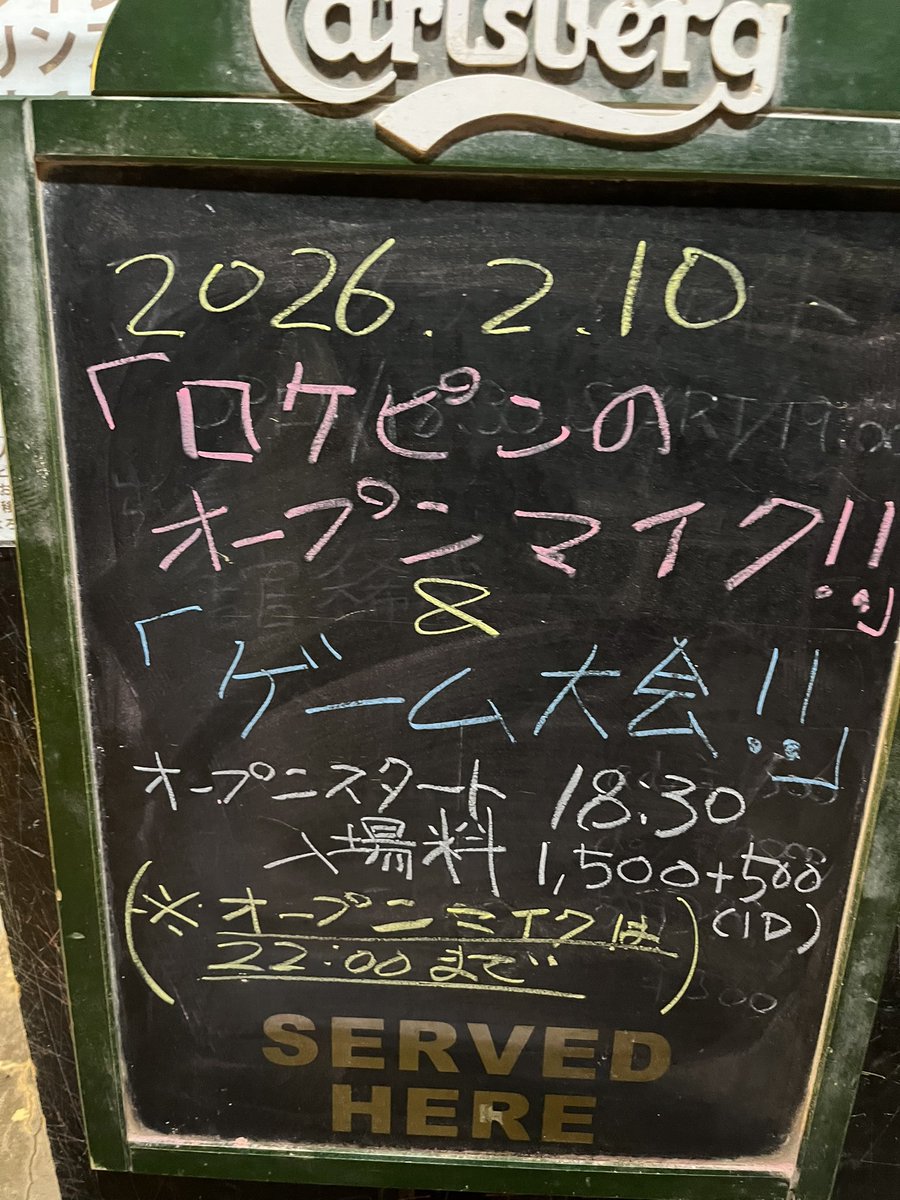 Carlsberg
2026.2.10
「ロケピンの
オープンマイク!!」
&
「ゲーム大会!!」
オープンスタート 18:30
入場料 1,500+500
(1D)
(※オープンマイクは
22:00まで)
SERVED
HERE